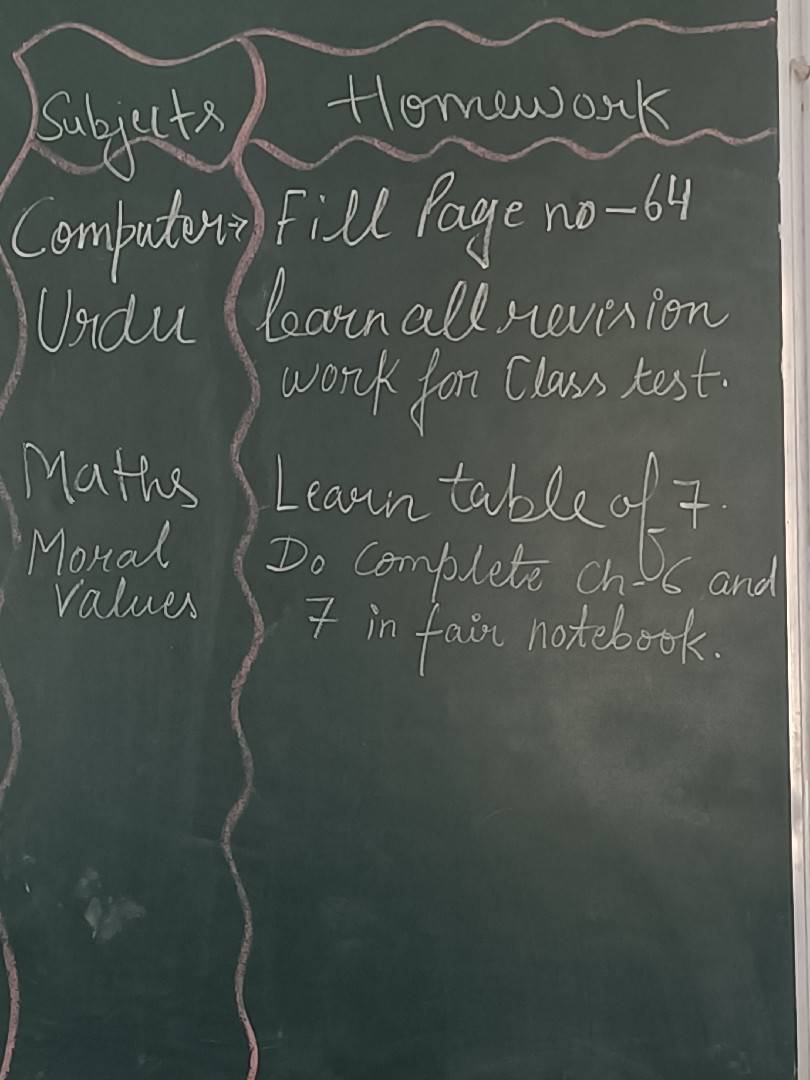 Subjects Homework
Computer→ Fill Page no-64
Urdu learn all revision
work for Class test.
Maths Learn table of 7.
Moral Do Complete ch-6 and
Values 7 in fair notebook.